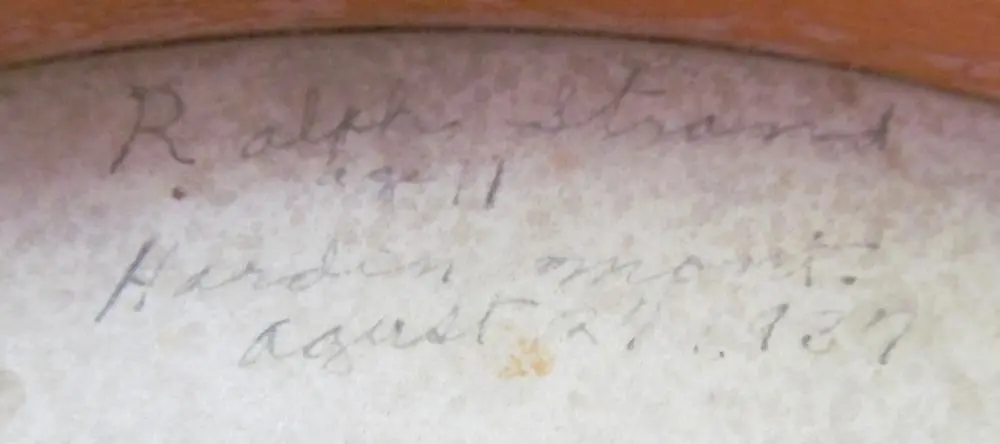 Ralph Strand
age 11
Hardin mont.
agust 27. 1937